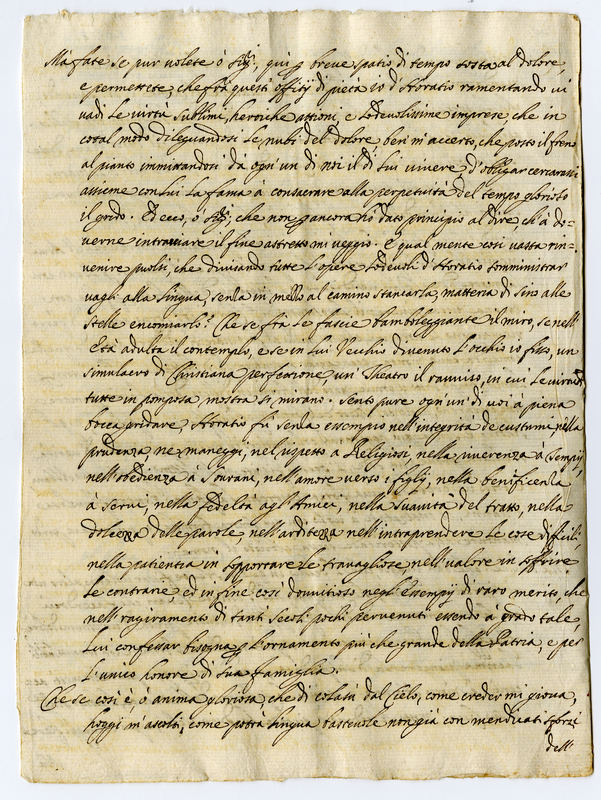 Mà fate se pur volete ò Sig.ri, qui p breve spatio di tempo sosta al dolore,
e permettete, che frà questi offitij di pietà io d'Horatio ramentando vi
vadi le virtù sublimi, heroiche attioni, e lodevolissime imprese che in
cotal modo dileguandosi le nubi del dolore ben m'accerto, che posto il freno
al pianto immirandosi dà ogn'un di noi il di lui vivere d'obligar cercarassi
assieme con lui la fama à consacrare alla perpetuità del tempo glorioso
il grido. Ed ecco, ò Sig.ri, che non p ancora hò dato principio al dire, ch'à do=
verne intracciare il fine astretto mi veggio. E qual mente così vasta rin=
venire puolsi, che divisando tutte l'opere lodevoli d'Horatio somministrar
vagli alla lingua, senza in mezzo al camino stancarla, matteria di sin alle
stelle encomiarlo? Che se frà le fascie bamboleggiante il miro, se nell'
Età adulta il contemplo, e se in lui Vecchio divenuto l'occhio io fisso, un
simulacro di Christiana perfettione, un Theatro il raviso, in cui le virtudi
tutte in pomposa mostra si mirano. Sento pure ogn'un di voi à piena
bocca gridare, Horatio fù senza essempio nell'integrità de custumi, nella
prudenza, ne maneggi, nel rispetto a Religiosi, nella riverenza à Tempij,
nell'obedienza à Sourani, nell'amore verso i figlij, nella benificenza
à servi, nella fedeltà agl'Amici, nella suavità del tratto, nella
dolcezza delle parole, nell'arditezza nell'intraprendere le cose difficili
nella patientia in sopportare le travagliose, nell'valore in soffrire
le contrarie, ed in fine così dovitioso negl'Essempij di raro merito, che
nell'ragiramento di tanti secoli pochi pervenuti essendo à grado tale
lui confessar bisogna p l'ornamento più che grande della Patria, e per
l'unico honore di sua famiglia.
Che se così è, ò anima gloriosa, che di colasù dal Cielo, come creder mi giova,
hoggi m'ascolti, come potrà lingua bastevole non già con mendicati sforzi
dell'